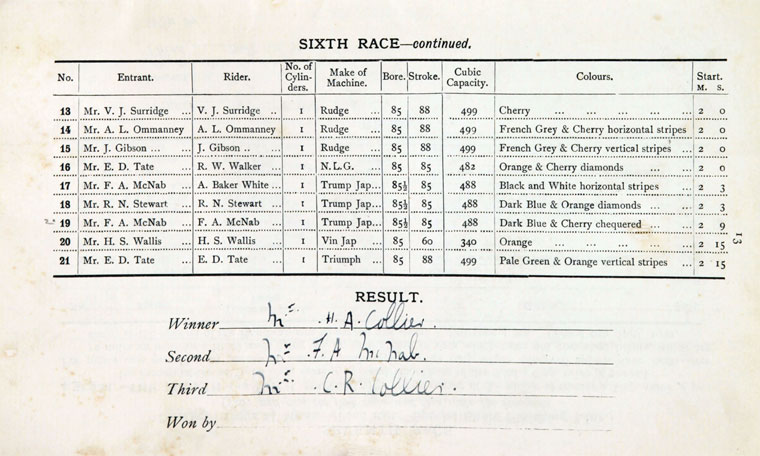 SIXTH RACE—continued.
No. Entrant. Rider. No. of Cylinders. Make of Machine. Bore. Stroke. Cubic Capacity. Colours. Start. M. S.
13 Mr. V. J. Surridge ... V. J. Surridge .. 1 Rudge ... 85 88 499 Cherry ... ... ... ... ... 2 0
14 Mr. A. L. Ommanney A. L. Ommanney 1 Rudge ... 85 88 499 French Grey & Cherry horizontal stripes 2 0
15 Mr. J. Gibson ... ... J. Gibson .. ... 1 Rudge ... 85 88 499 French Grey & Cherry vertical stripes ... 2 0
16 Mr. E. D. Tate ... R. W. Walker ... 1 N.L.G. ... 85 85 482 Orange & Cherry diamonds ... ... 2 0
17 Mr. F. A. McNab ... A. Baker White ... 1 Trump Jap... 85½ 85 488 Black and White horizontal stripes ... 2 3
18 Mr. R. N. Stewart ... R. N. Stewart ... 1 Trump Jap... 85½ 85 488 Dark Blue & Orange diamonds ... ... 2 3
19 Mr. F. A. McNab ... F. A. McNab ... 1 Trump Jap... 85½ 85 488 Dark Blue & Cherry chequered ... ... 2 9
20 Mr. H. S. Wallis ... H. S. Wallis ... 1 Vin Jap ... 85 60 340 Orange ... ... ... ... ... 2 15
21 Mr. E. D. Tate ... E. D. Tate ... 1 Triumph ... 85 88 499 Pale Green & Orange vertical stripes ... 2 15
13
RESULT.
Winner Mr. H. A. Collier.
Second Mr. F. A McNab.
Third Mr. C. R. Collier.
Won by